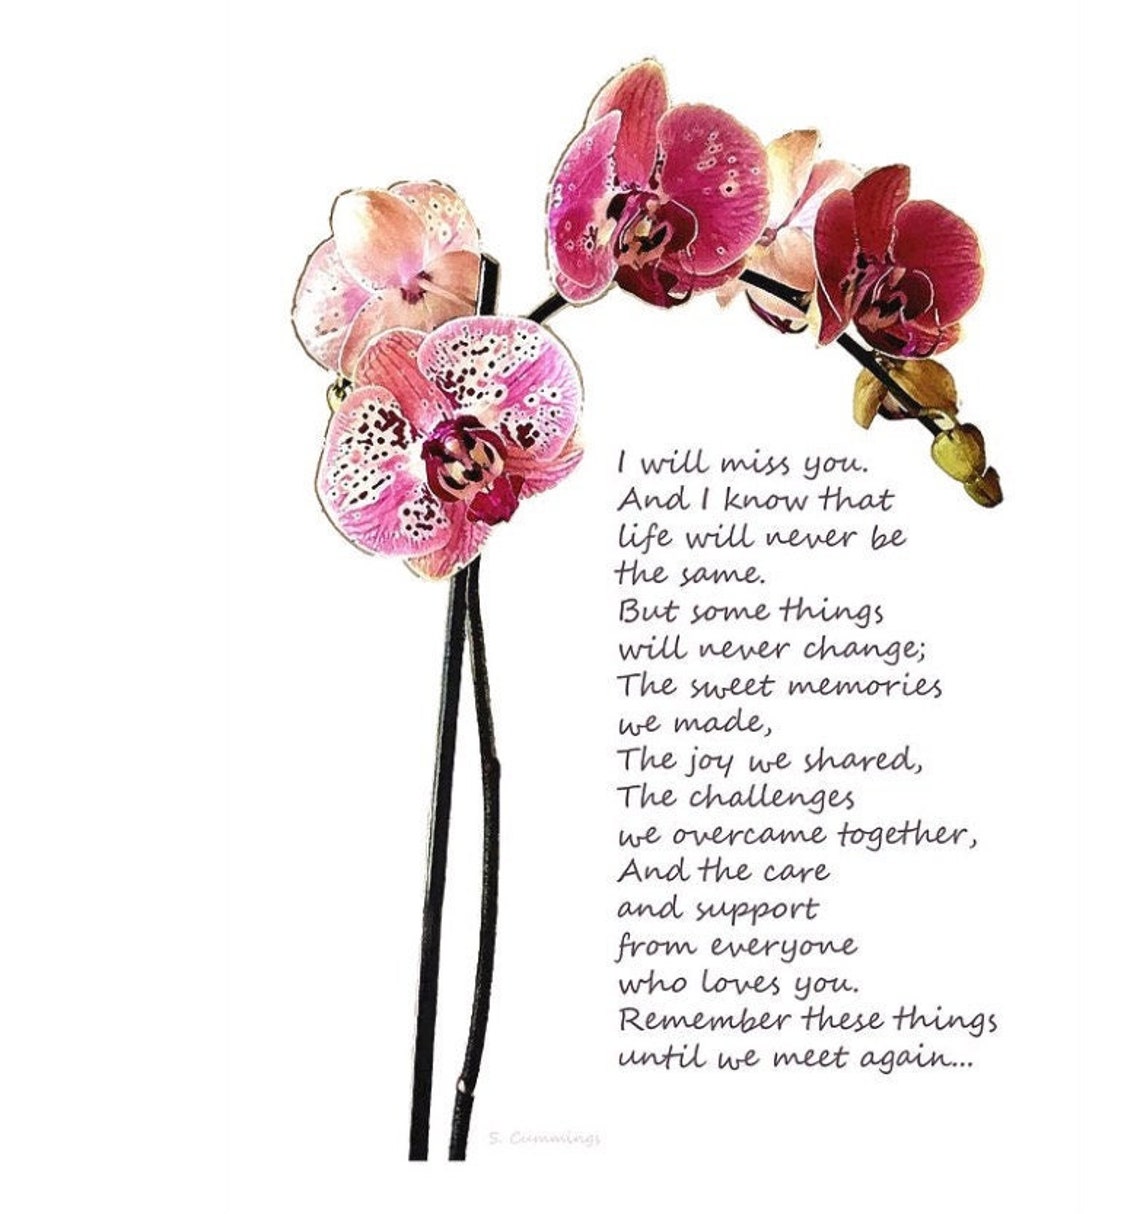 I will miss you.
And I know that
life will never be
the same.
But some things
will never change;
The sweet memories
we made,
The joy we shared,
The challenges
we overcame together,
And the care
and support
from everyone
who loves you.
Remember these things
until we meet again...
S. Cummings